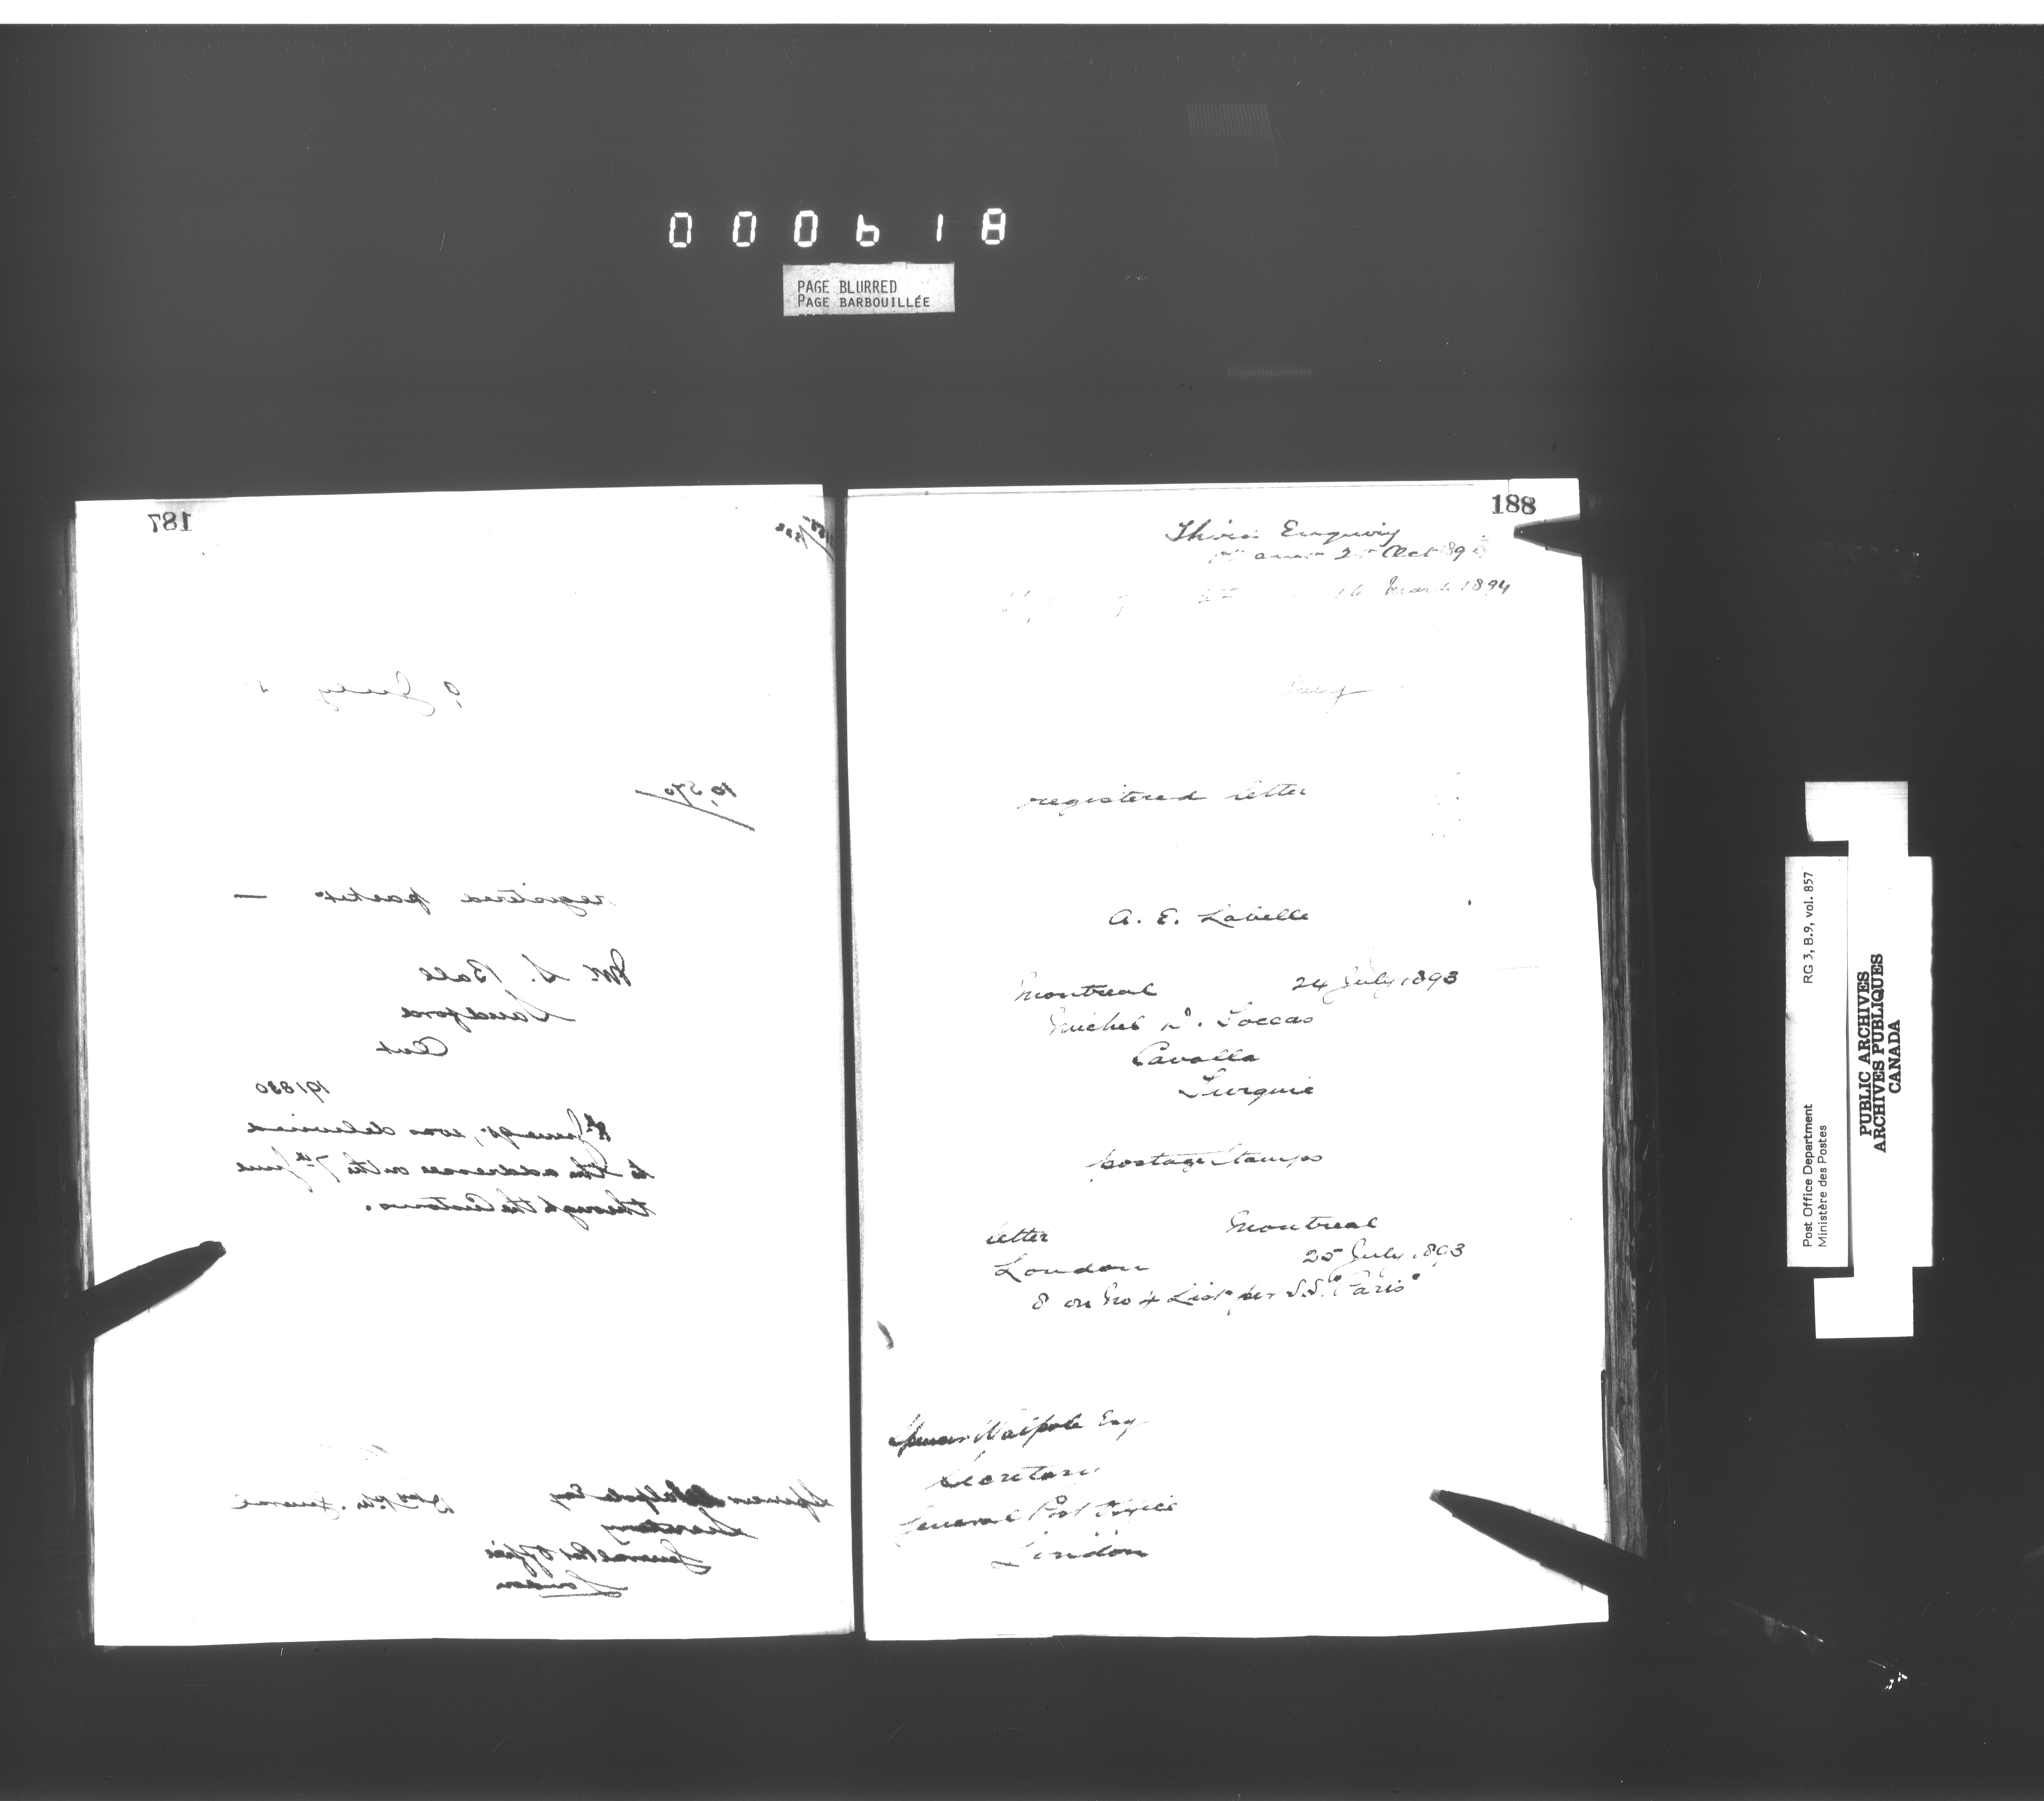 000618
PAGE BLURRED
PAGE BARBOUILLÉE
187
July
10,570
registered packet —
W. S. Ball
Sandford
Ont
191830
was delivered
to the addressee on the 7th June
through the Customs.
Spencer Walpole Esq
Secretary
General Post Office
London
188
Third Enquiry
Oct 189
March 1894
registered letter
A. E. Lavelle
Montreal 24 July 1893
Michel Toccas
Cavalla
Turquie
postage stamps
letter Montreal
London 25 July 1893
8 on No 4 List per S.S. "Paris"
Spencer Walpole Esq
Secretary
General Post Office
London
Post Office Department RG 3, B.9, vol. 857
Ministère des Postes
PUBLIC ARCHIVES
ARCHIVES PUBLIQUES
CANADA